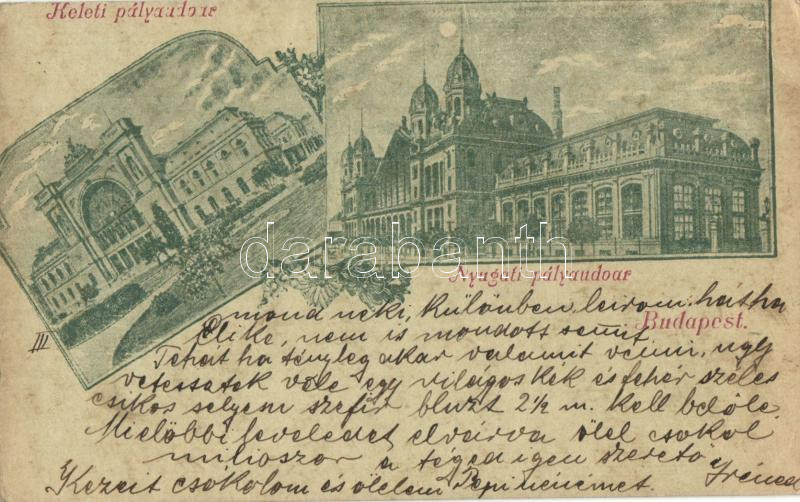 Keleti pályaudvar
Nyugati pályaudvar
Budapest.
III
darabanth.com
mond neki, különben leirom hátha
Elike, nem is mondott semit
Tehát ha tényleg akar valamit venni, ugy
vetessetek vele egy világoskék és fehér széles
csikos selyem szefir bluzt 2½ m. kell belőle.
Mielőbbi leveledet elvárva ölel csokol
milioszor a téged igen szerető
Kezeit csokolom és ölelem Pepinénémet. Iréned